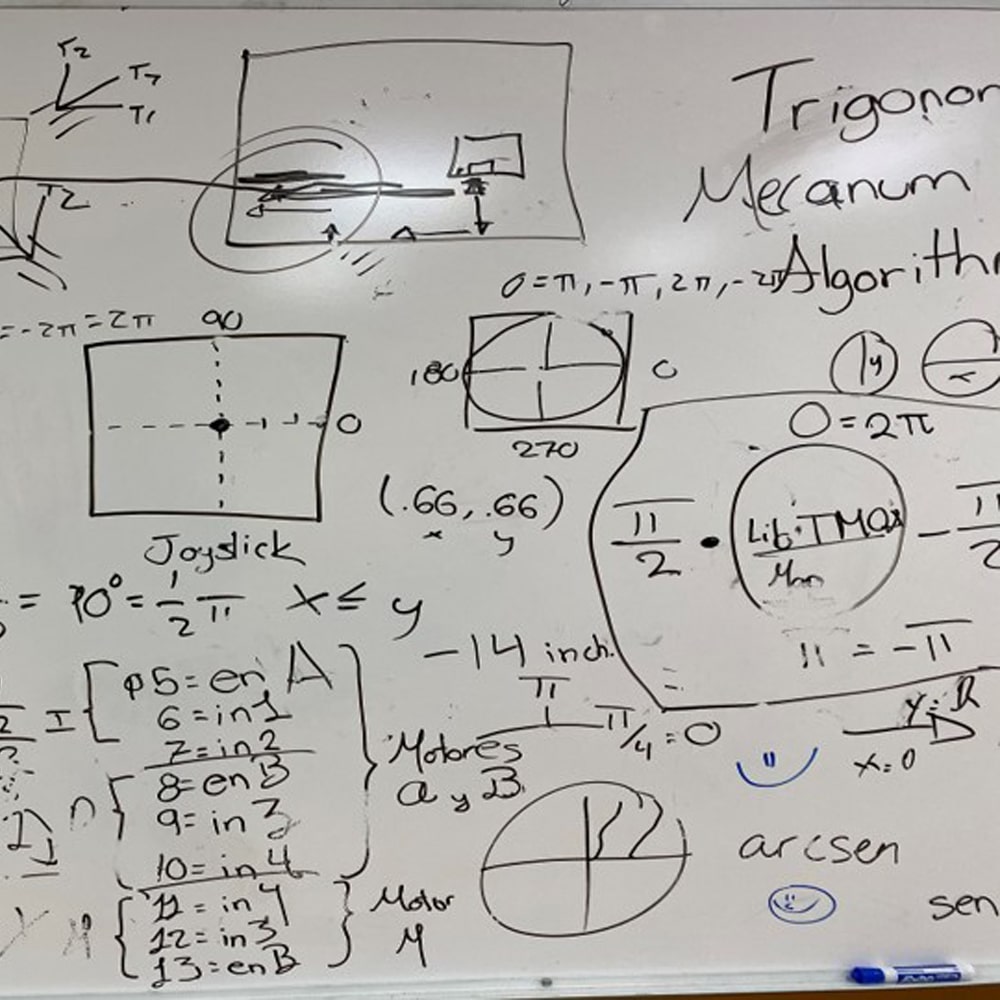 T2
T1
T2
Trigonom
Mecanum
Algorith
0=π, -π, 2π, -2π
= -2π = 2π
90
0
Joystick
180
0
270
(.66, .66)
x y
y
x
0 = 2π
π/2 •
Lib:TMax
- π/2
π = -π
= 90° = 1/2 π
x ≤ y
-14 inch.
π
π/4 = 0
I
p5 = en A
6 = in 1
7 = in 2
8 = en B
9 = in 3
10 = in 4
Motores
a y B
11 = in 4
12 = in 3
13 = en B
Motor
M
y = R
x = 0
arcsen
sen